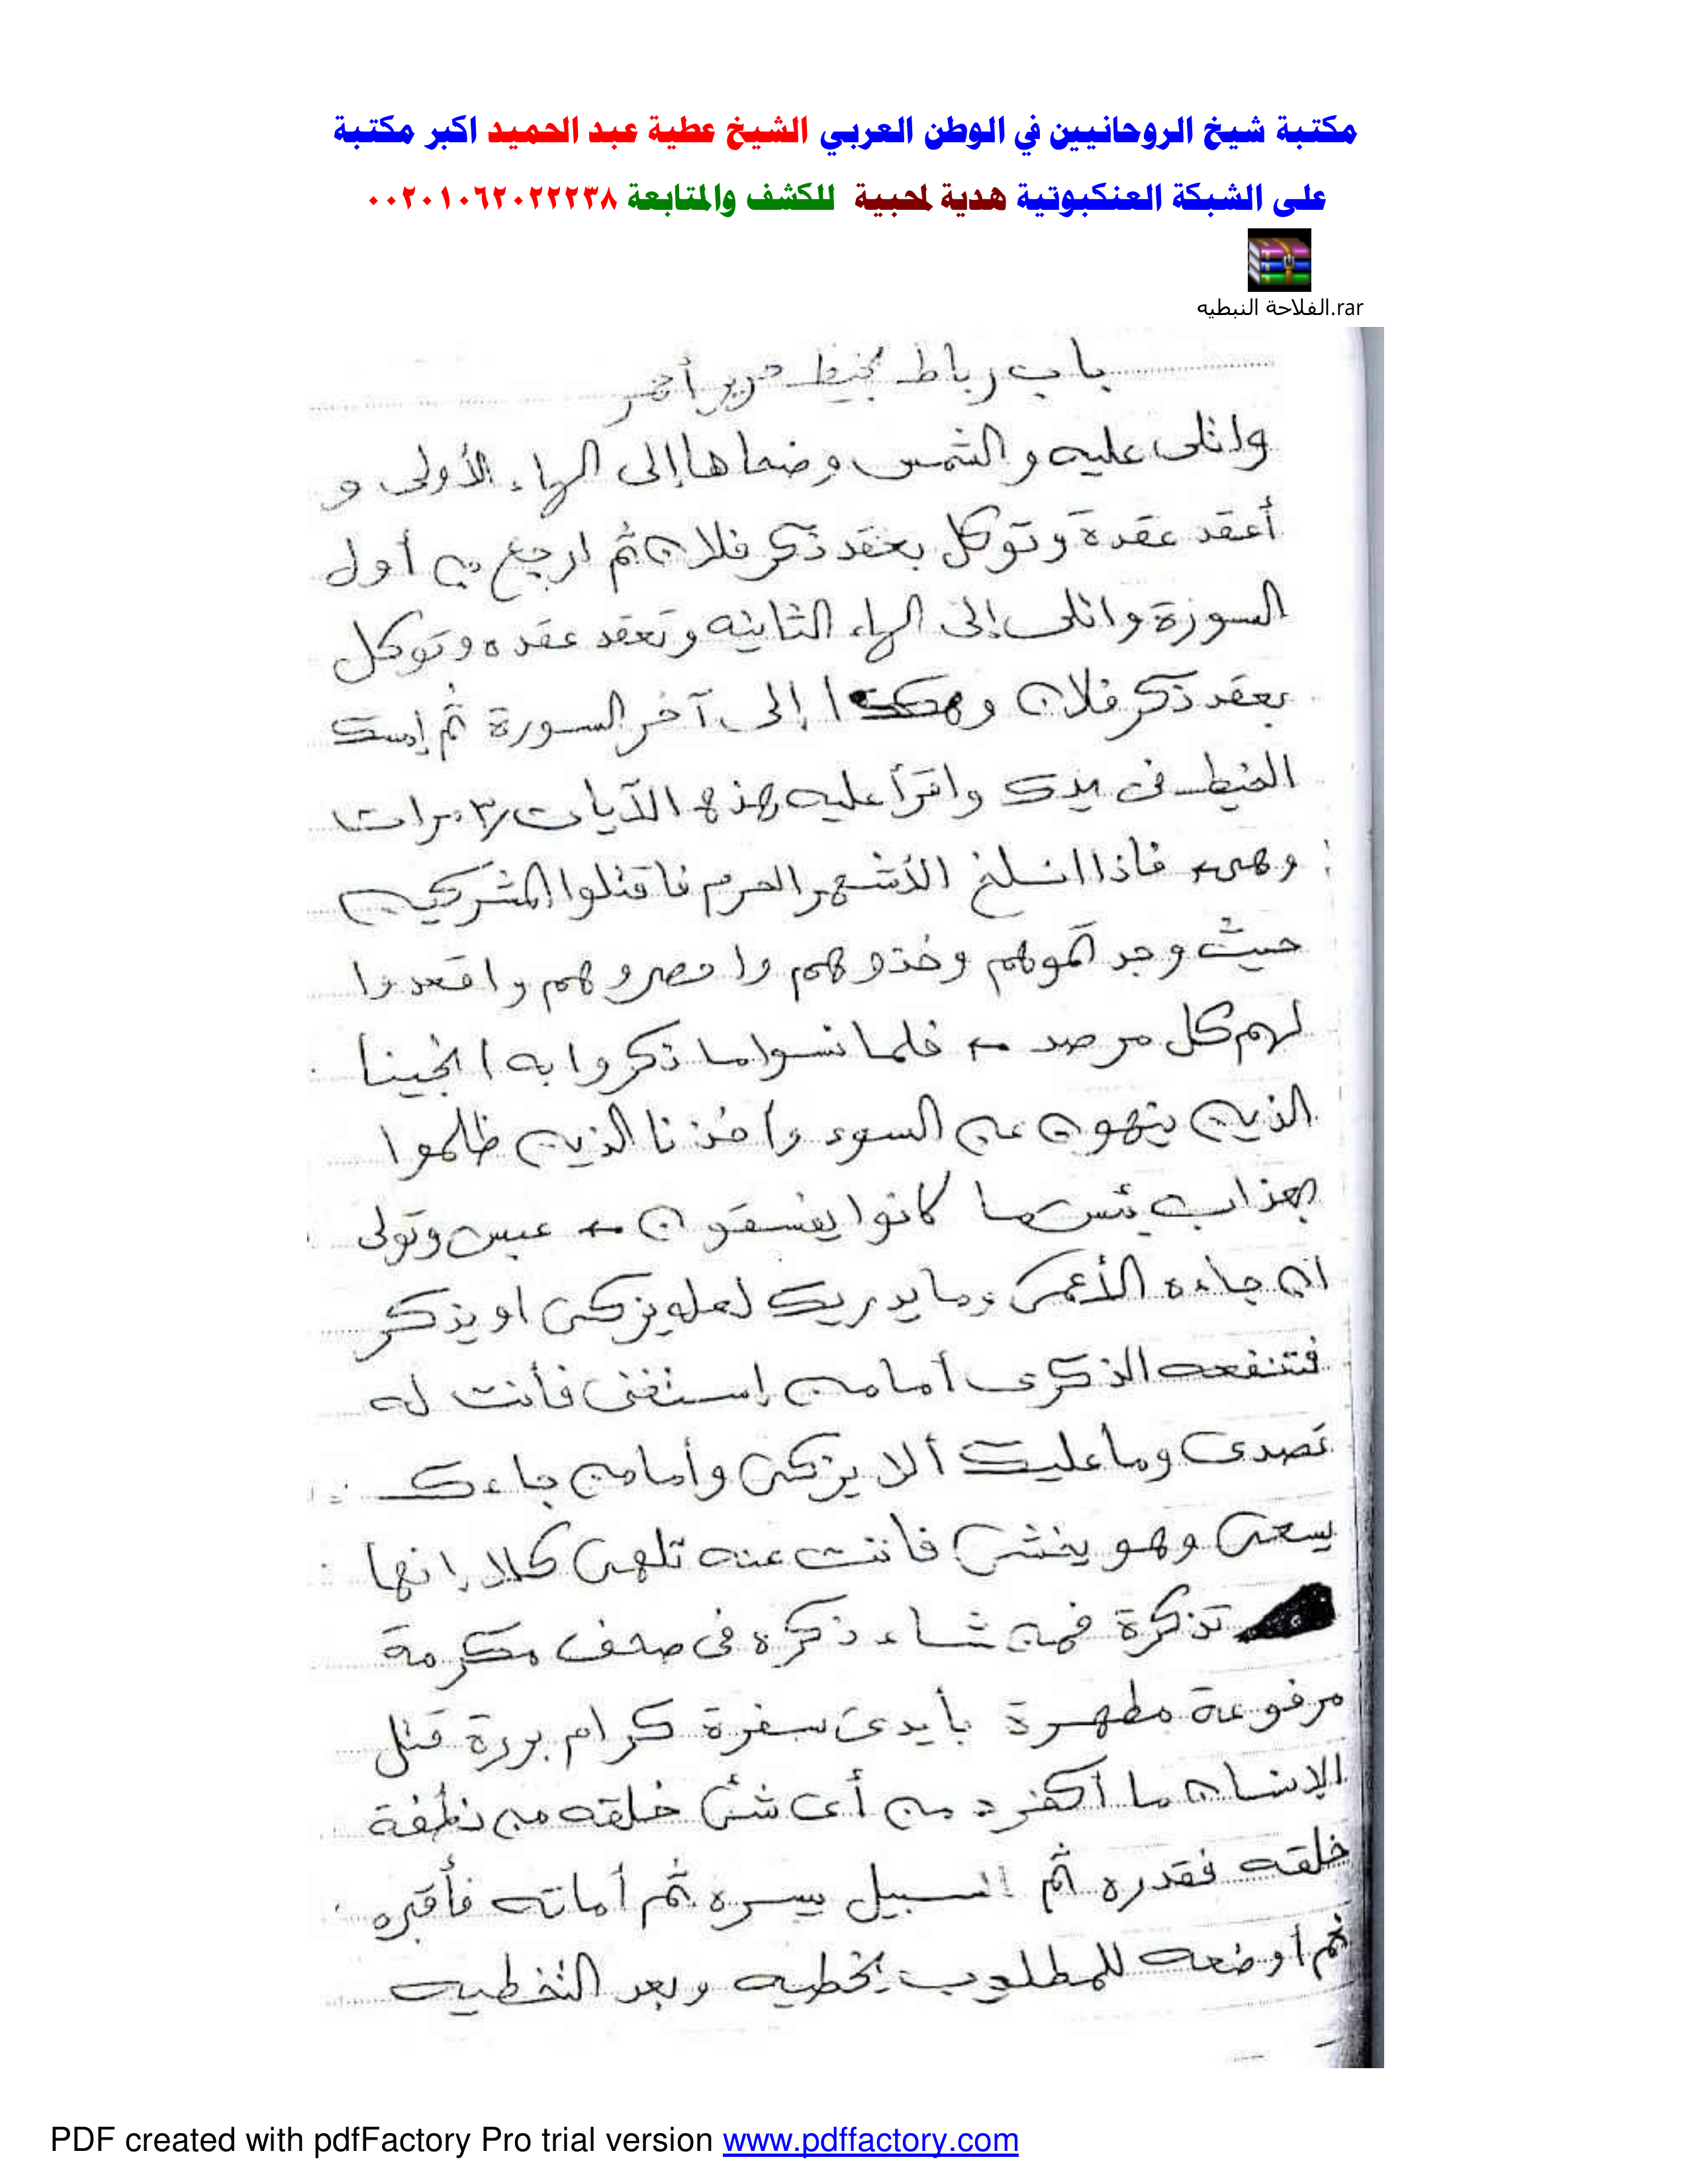 مكتبة شيخ الروحانيين في الوطن العربي الشيخ عطية عبد الحميد اكبر مكتبة
على الشبكة العنكبوتية هدية لمحبية للكشف والمتابعة ٠٠٢٠١٠٦٢٠٢٢٢٣٨
الفلاحة النبطيه.rar
باب رباط بخيط حرير أحمر
واتلى عليه والشمس وضحاها إلى الهاء الأولى و
أعقد عقدة وتوكل بعقد ذكر فلان ثم ارجع من أول
السورة واتلى إلى الهاء الثانيه وتعقد عقده وتوكل
بعقد ذكر فلان وهكذا إلى آخر السورة ثم إمسك
الخيط فى يدك واقرأ عليه هذه الآيات ٣ مرات
وهى فاذا انسلخ الأشهر الحرم فاقتلوا المشركين
حيث وجدتموهم وخذوهم واحصروهم واقعدوا
لهم كل مرصد فلما نسوا ما ذكروا به انجينا
الذين ينهون عن السوء وأخذنا الذين ظلموا
بعذاب بئس بما كانوا يفسقون عبس وتولى
ان جاءه الأعمى وما يدريك لعله يزكى او يذكر
فتنفعه الذكرى أما من إستغنى فأنت له
تصدى وما عليك ألا يزكى وأما من جاءك
يسعى وهو يخشى فانت عنه تلهى كلا إنها
تذكرة فمن شاء ذكره فى صحف مكرمة
مرفوعة مطهرة بأيدى سفرة كرام بررة قتل
الإنسان ما أكفره من أى شئ خلقه من نطفة
خلقه فقدره ثم السبيل يسره ثم أماته فأقبره
ثم اوضعه للمطلوب يخطيه وبعد التخطيه
PDF created with pdfFactory Pro trial version www.pdffactory.com